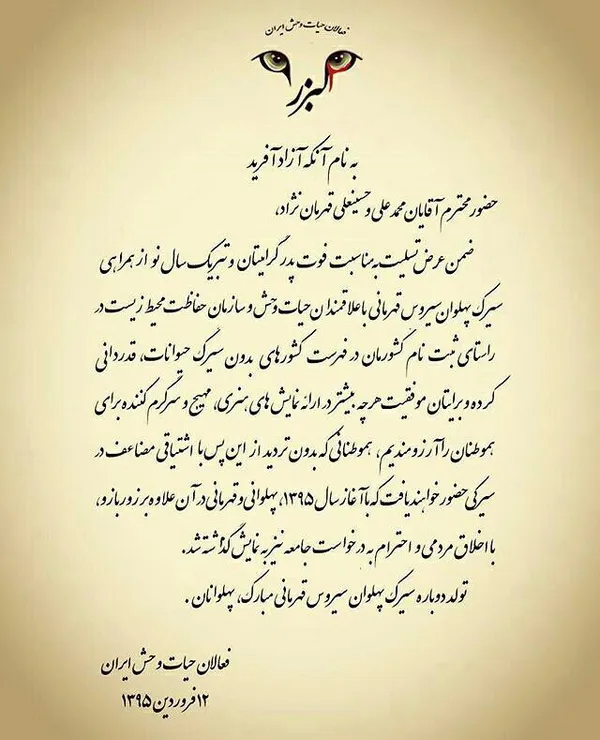 فعالان حیات وحش ایران
البرز
به نام آنکه آزاد آفرید
حضور محترم آقایان محمدعلی و حسینعلی قهرمان نژاد،
ضمن عرض تسلیت به مناسبت فوت پدر گرامیتان و تبریک سال نو از همراهی
سیرک پهلوان سیروس قهرمانی با علاقمندان حیات وحش و سازمان حفاظت محیط زیست در
راستای ثبت نام کشورمان در فهرست کشورهای بدون سیرک حیوانات، قدردانی
کرده و برایتان موفقیت هرچه بیشتر در ارائه نمایش های هنری، مهیج و سرگرم کننده برای
هموطنان را آرزومندیم، هموطنانی که بدون تردید از این پس با اشتیاقی مضاعف در
سیرکی حضور خواهند یافت که با آغاز سال ۱۳۹۵، پهلوانی و قهرمانی در آن علاوه بر زور بازو،
با اخلاق مردمی و احترام به درخواست جامعه نیز به نمایش گذاشته شد.
تولد دوباره سیرک پهلوان سیروس قهرمانی مبارک، پهلوانان.
فعالان حیات وحش ایران
۱۲ فروردین ۱۳۹۵